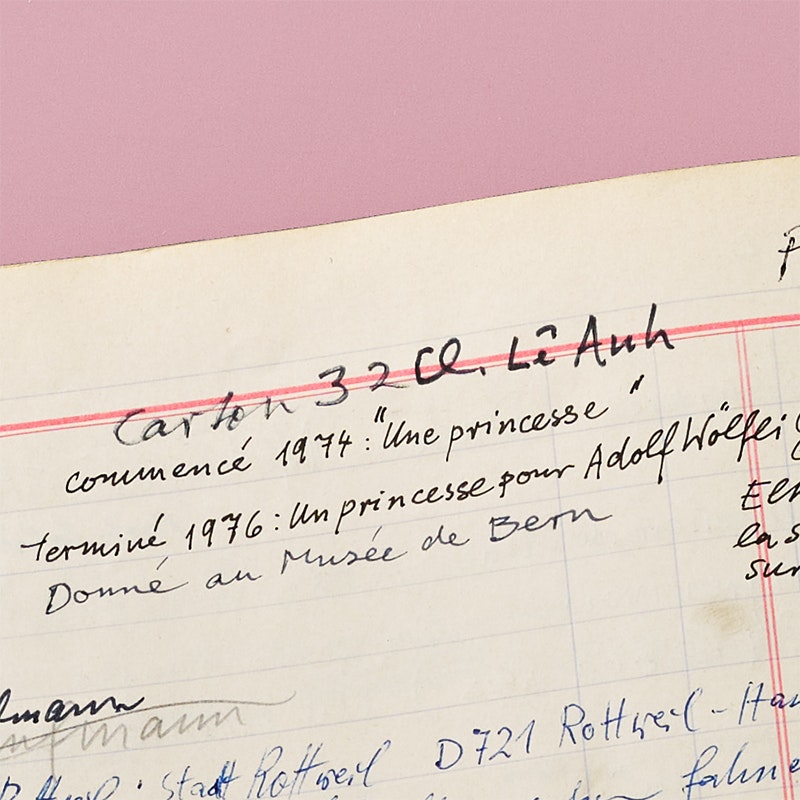 Carton 32 Cl. Lê Anh
commencé 1974 : "Une princesse"
terminé 1976 : Un princesse pour Adolf Wölfli (
la s
sur
Donné au Musée de Bern
Stadt Rottweil D721 Rottweil - Hau